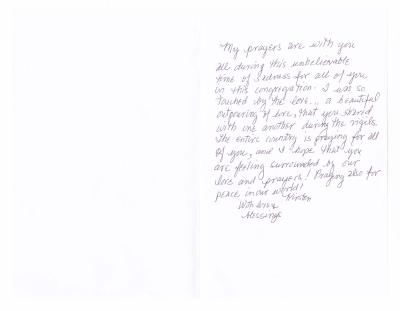 My prayers are with you
all during this unbelievable
time of sadness for all of you
in this congregation. I was so
touched by the love... a beautiful
outpouring of love, that you shared
with one another during the vigils.
The entire country is praying for all
of you, and I hope that you
are feeling surrounded by our
love and prayers! Praying also for
peace in our world!
With love &
Blessings
Kirsten